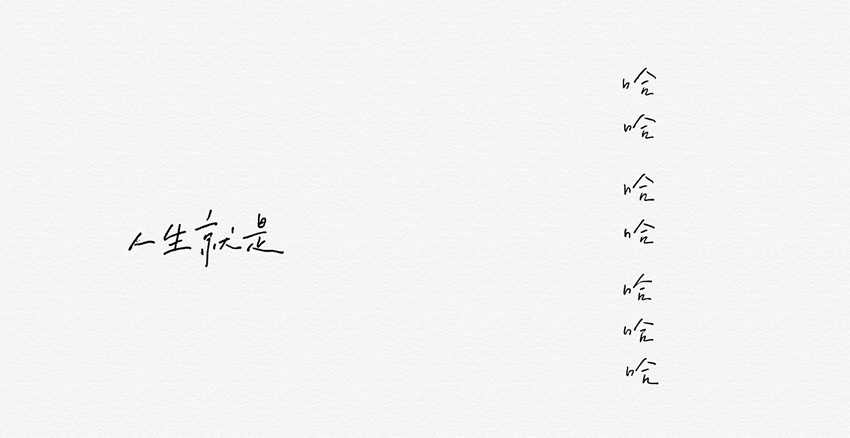 人生就是
哈
哈
哈
哈
哈
哈
哈